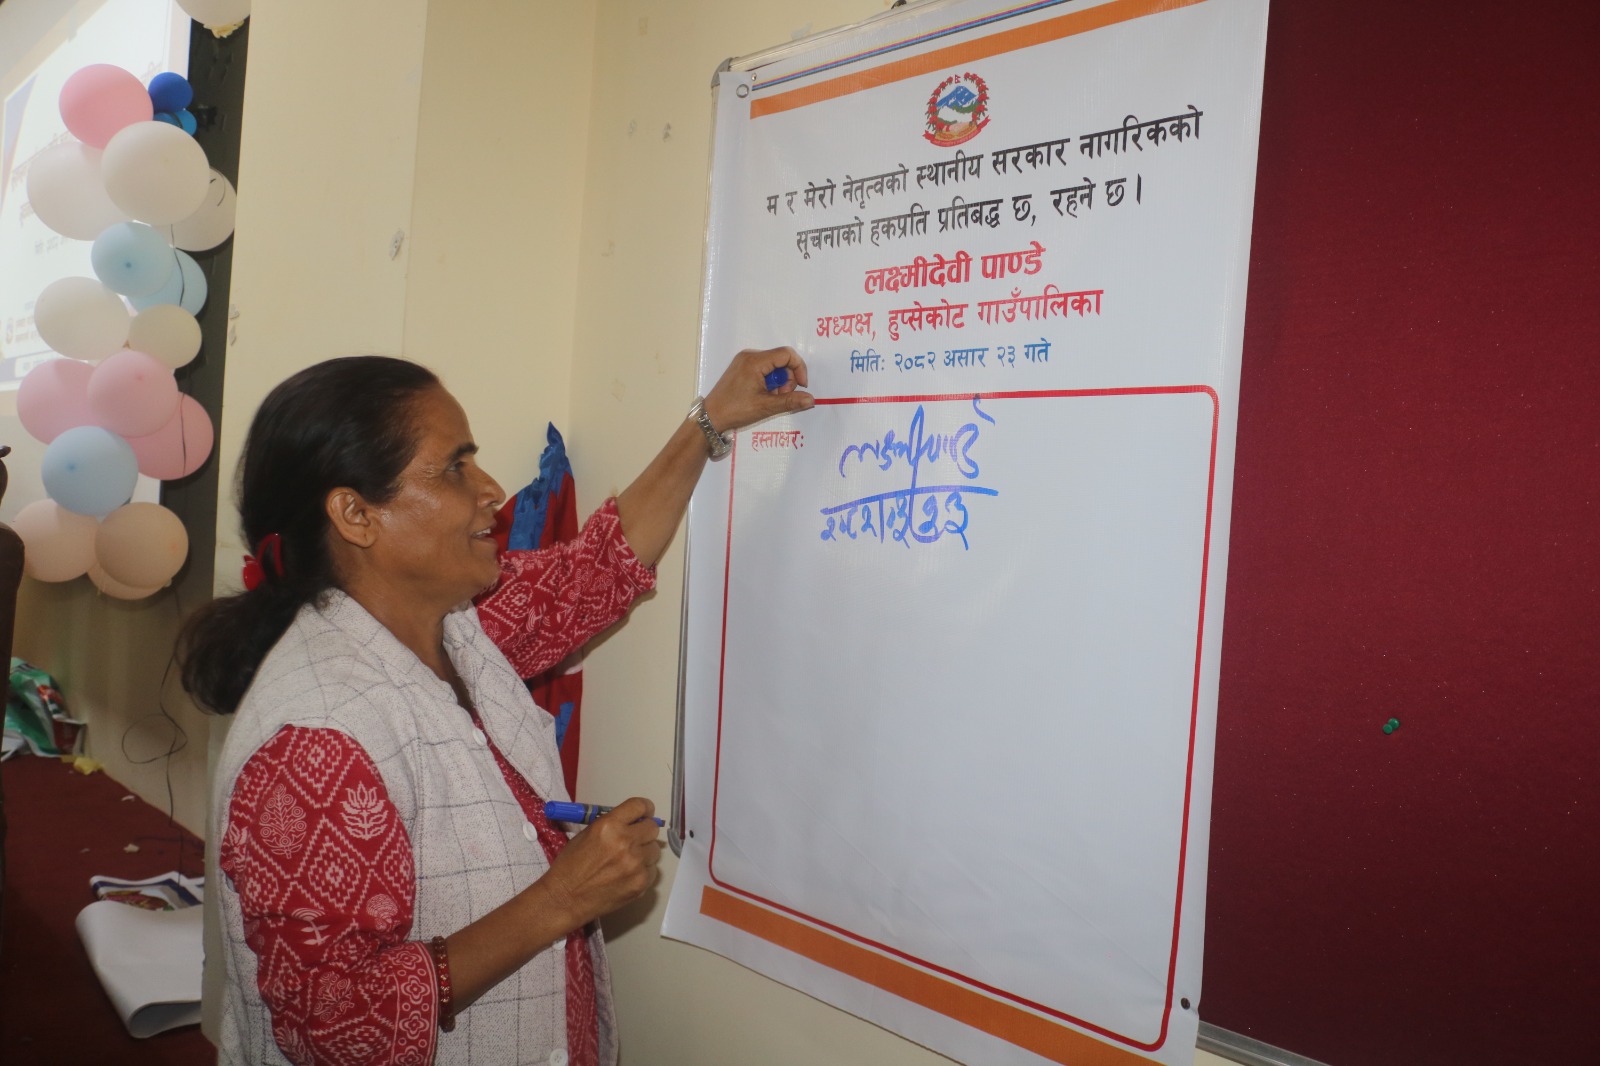 म र मेरो नेतृत्वको स्थानीय सरकार नागरिकको
सूचनाको हकप्रति प्रतिबद्ध छ, रहने छ।
लक्ष्मीदेवी पाण्डे
अध्यक्ष, हुप्सेकोट गाउँपालिका
मितिः २०८२ असार २३ गते
हस्ताक्षरः